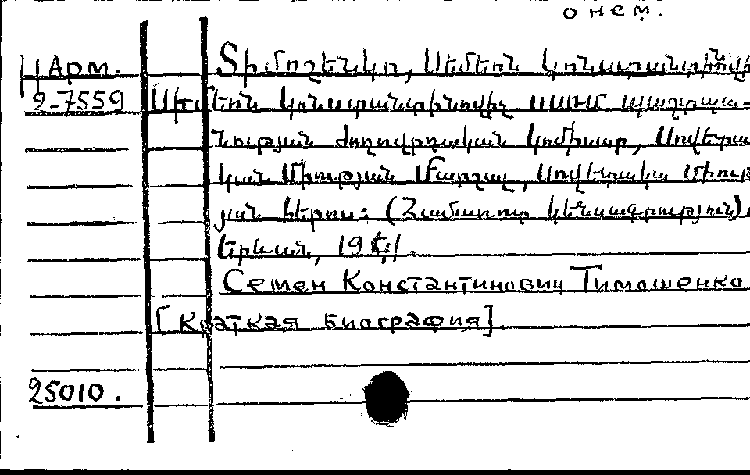 онем.
Арм. Տիմոշենկո, Սեմեոն Կոնստանտինովիչ
2-7559 Սեմեոն Կոնստանտինովիչ ՍՍՌՄ պաշտպա-
նության ժողովրդական կոմիսար, Սովետա-
կան Միության Մարշալ, Սովետական Միու-
յան հերոս: (Համառոտ կենսագրություն).
Երևան, 19
Семен Константинович Тимошенко
[Краткая биография].
25010.